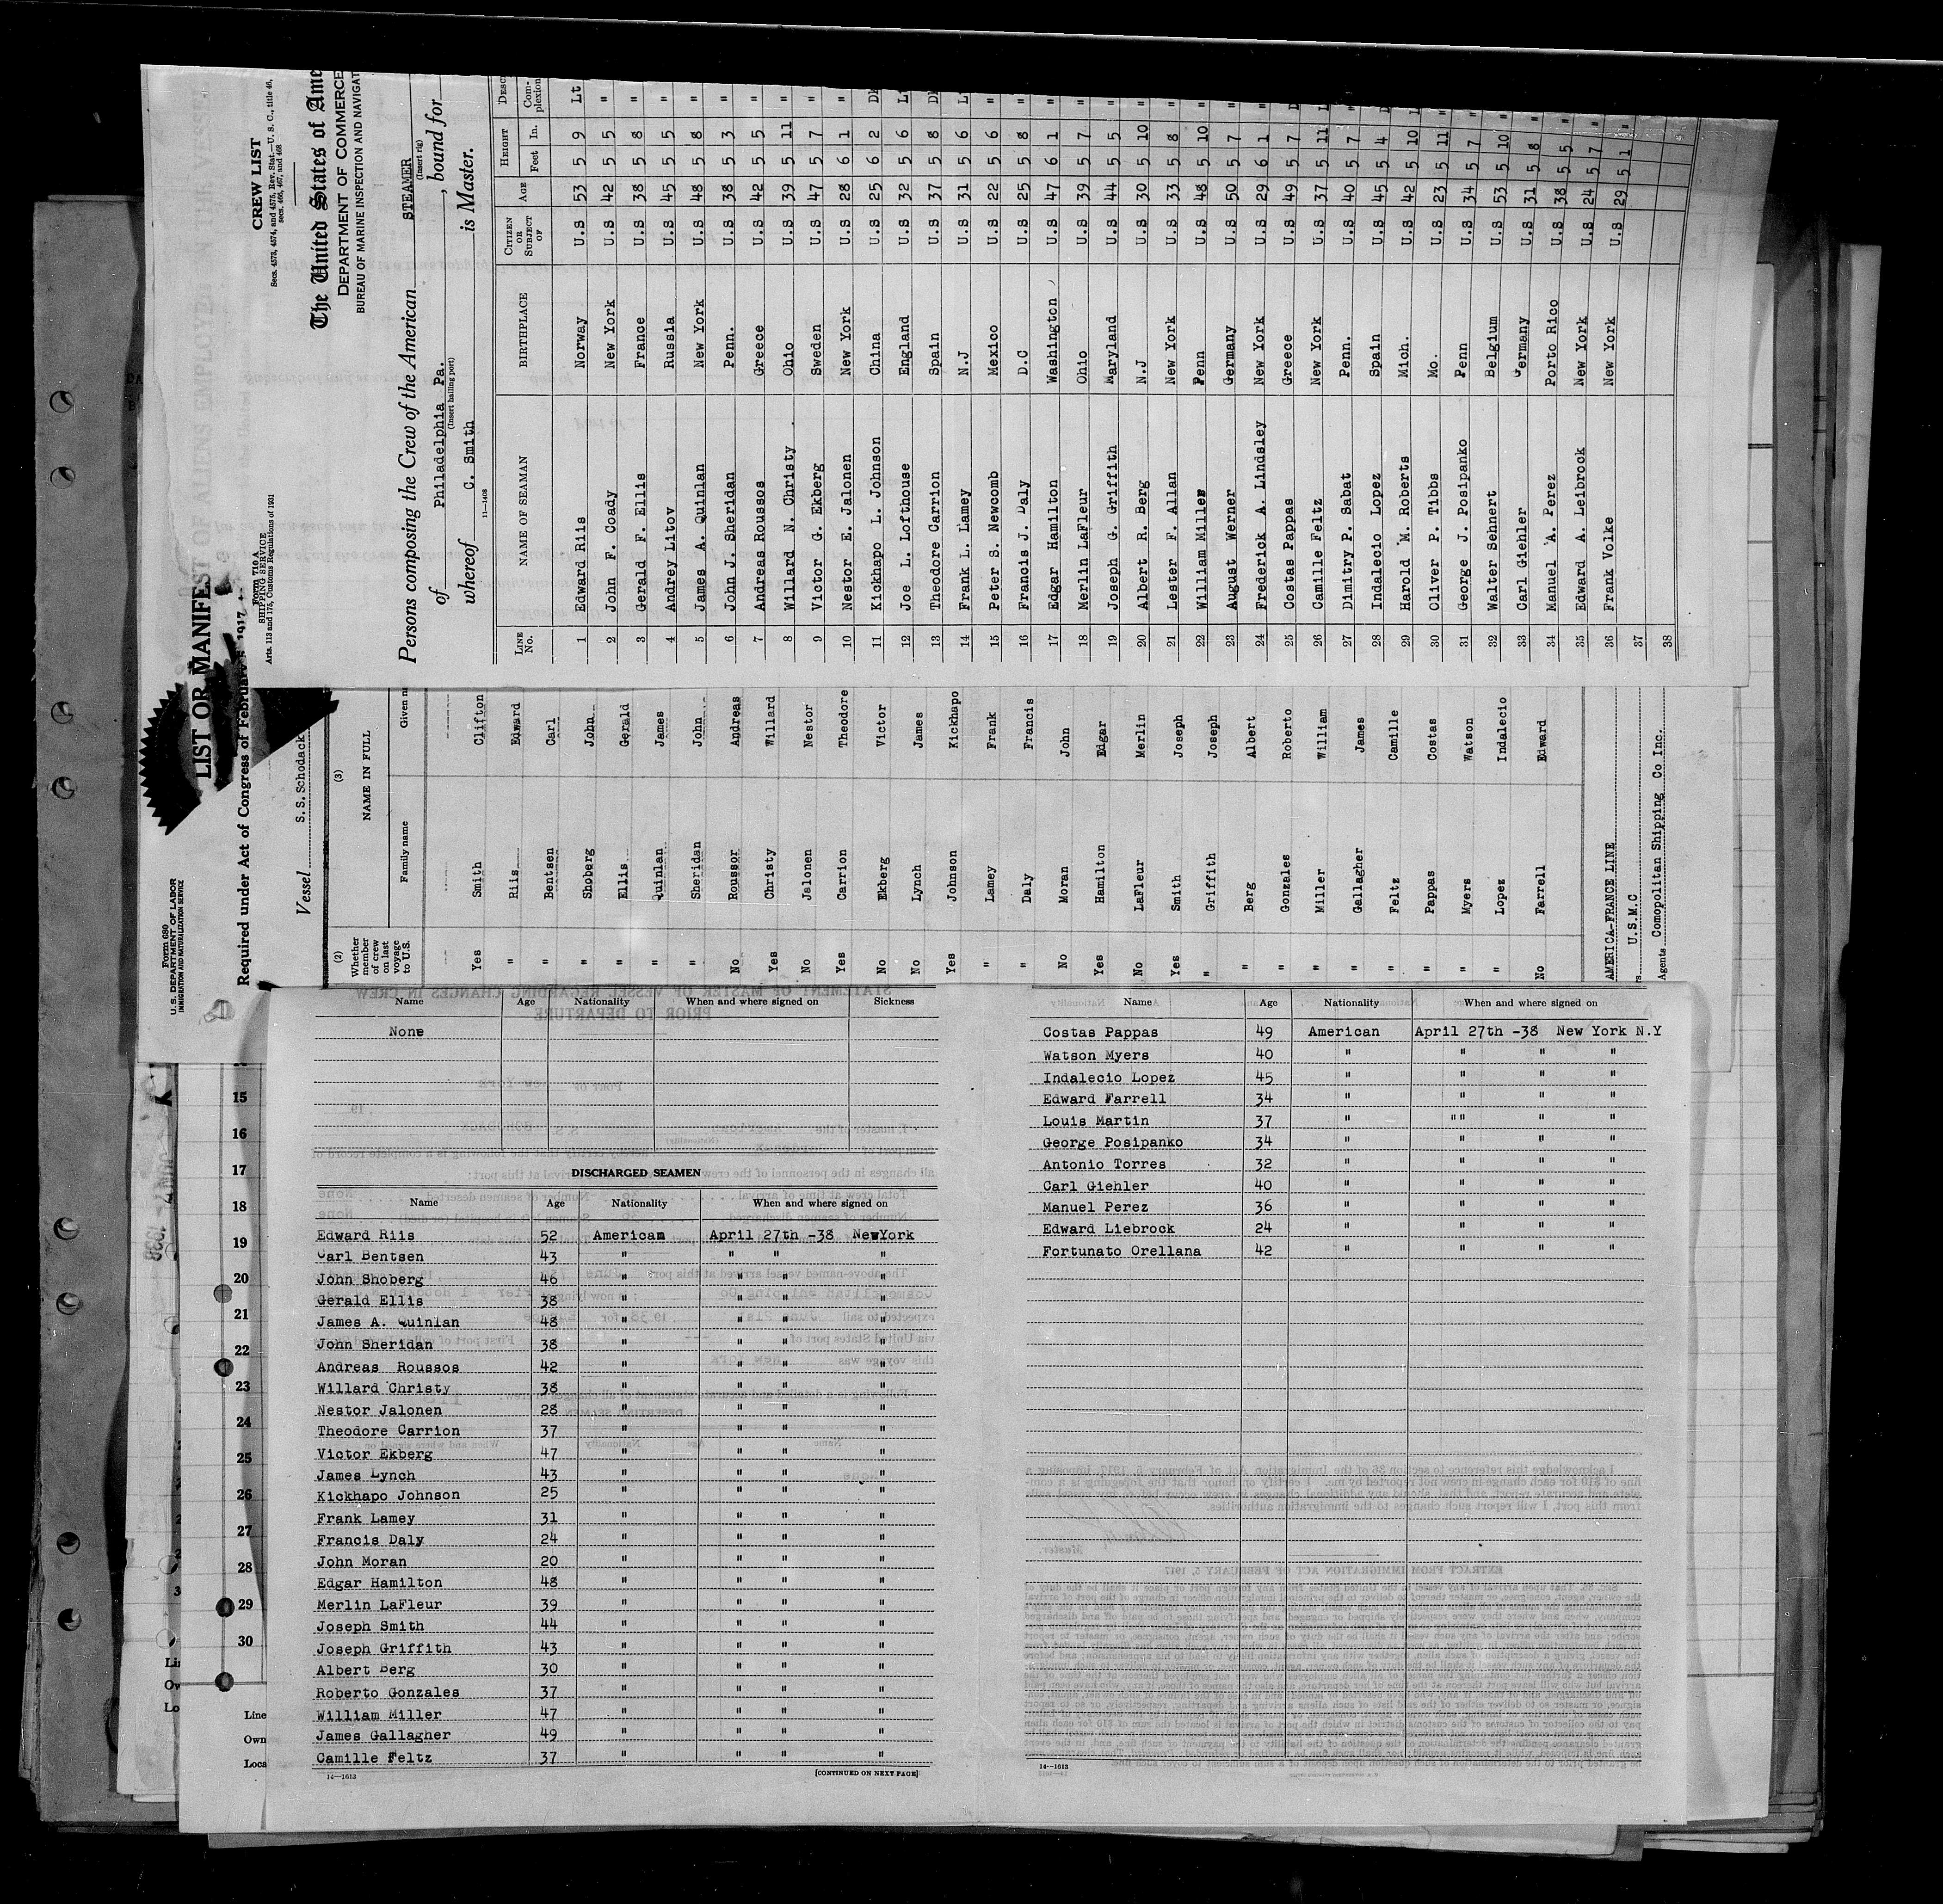 CREW LIST
Secs. 4573, 4574, and 4575, Rev. Stat.—U. S. C., title 46,
secs. 466, 467, and 468
Form 710 A
SHIPPING SERVICE
Arts. 113 and 173, Customs Regulations of 1931
The United States of Ame
DEPARTMENT OF COMMERCE
BUREAU OF MARINE INSPECTION AND NAVIGAT
Persons composing the Crew of the American STEAMER
(Insert rig)
of Philadelphia Pa. , bound for
(Insert hailing port)
whereof C. Smith is Master.
11—1408
LINE No. NAME OF SEAMAN BIRTHPLACE CITIZEN OR SUBJECT OF AGE HEIGHT Feet In. DESCR Com-plexion
1 Edward Riis Norway U.S 53 5 9 Lt
2 John F. Coady New York U.S 42 5 5 "
3 Gerald F. Ellis France U.S 38 5 8 "
4 Andrey Litov Russia U.S 45 5 5 "
5 James A. Quinlan New York U.S 48 5 8 "
6 John J. Sheridan Penn. U.S 38 5 3 "
7 Andreas Roussos Greece U.S 42 5 5 "
8 Willard N. Christy Ohio U.S 39 5 11 "
9 Victor G. Ekberg Sweden U.S 47 5 7 "
10 Nestor E. Jalonen New York U.S 28 6 1 "
11 Kickhapo L. Johnson China U.S 25 6 2 Dk
12 Joe L. Lofthouse England U.S 32 5 6
13 Theodore Carrion Spain U.S 37 5 8
14 Frank L. Lamey N.J U.S 31 5 6
15 Peter S. Newcomb Mexico U.S 22 5 6 "
16 Francis J. Daly D.C U.S 25 5 8 "
17 Edgar Hamilton Washington U.S 47 6 1 "
18 Merlin LaFleur Ohio U.S 39 5 7 "
19 Joseph G. Griffith Maryland U.S 44 5 5 "
20 Albert R. Berg N.J U.S 30 5 10 "
21 Lester F. Allan New York U.S 33 5 8 "
22 William Miller Penn U.S 48 5 10 "
23 August Werner Germany U.S 50 5 7 "
24 Frederick A. Lindsley New York U.S 29 6 1 "
25 Costas Pappas Greece U.S 49 5 7
26 Camille Feltz New York U.S 37 5 11
27 Dimitry P. Sabat Penn. U.S 40 5 7 "
28 Indalecio Lopez Spain U.S 45 5 4
29 Harold M. Roberts Mich. U.S 42 5 10
30 Cliver P. Tibbs Mo. U.S 23 5 11 "
31 George J. Posipanko Penn U.S 34 5 7 "
32 Walter Sehnert Belgium U.S 53 5 10 "
33 Carl Giehler Germany U.S 31 5 8 "
34 Manuel A. Perez Porto Rico U.S 38 5 5 "
35 Edward A. Leibrock New York U.S 24 5 7 "
36 Frank Volke New York U.S 29 5 1 "
37
38
Form 680
U. S. DEPARTMENT OF LABOR
IMMIGRATION AND NATURALIZATION SERVICE
LIST OR MANIFEST OF ALIENS EMPLOYED
Required under Act of Congress of February 5 1917
Vessel S. S. Schodack
(2) (3)
Whether member of crew on last voyage to U.S. NAME IN FULL
Family name Given n
Yes Smith Clifton
" Riis Edward
" Bentsen Carl
" Shoberg John
" Ellis Gerald
" Quinlan James
" Sheridan John
No Roussor Andreas
Yes Christy Willard
No Jalonen Nestor
Yes Carrion Theodore
No Ekberg Victor
No Lynch James
Yes Johnson Kickhapo
" Lamey Frank
" Daly Francis
No Moran John
Yes Hamilton Edgar
No LaFleur Merlin
Yes Smith Joseph
" Griffith Joseph
" Berg Albert
" Gonzales Roberto
" Miller William
" Gallagher James
" Feltz Camille
" Pappas Costas
" Myers Watson
" Lopez Indalecio
No Farrell Edward
AMERICA-FRANCE LINE
U.S.M.C
Agents Comopolitan Shipping Co Inc.
Name Age Nationality When and where signed on Sickness
None
DISCHARGED SEAMEN
Name Age Nationality When and where signed on
Edward Riis 52 American April 27th -38 NewYork
Carl Bentsen 43 " " " "
John Shoberg 46 " " " "
Gerald Ellis 38 " " " "
James A. Quinlan 48 " " " "
John Sheridan 38 " " " "
Andreas Roussos 42 " " " "
Willard Christy 38 " " " "
Nestor Jalonen 28 " " " "
Theodore Carrion 37 " " " "
Victor Ekberg 47 " " " "
James Lynch 43 " " " "
Kickhapo Johnson 25 " " " "
Frank Lamey 31 " " " "
Francis Daly 24 " " " "
John Moran 20 " " " "
Edgar Hamilton 48 " " " "
Merlin LaFleur 39 " " " "
Joseph Smith 44 " " " "
Joseph Griffith 43 " " " "
Albert Berg 30 " " " "
Roberto Gonzales 37 " " " "
William Miller 47 " " " "
James Gallagher 49 " " " "
Camille Feltz 37 " " " "
14—1613 [CONTINUED ON NEXT PAGE]
Name Age Nationality When and where signed on
Costas Pappas 49 American April 27th -38 New York N.Y
Watson Myers 40 " " " "
Indalecio Lopez 45 " " " "
Edward Farrell 34 " " " "
Louis Martin 37 " "" " "
George Posipanko 34 " " " "
Antonio Torres 32 " " " "
Carl Giehler 40 " " " "
Manuel Perez 36 " " " "
Edward Liebrock 24 " " " "
Fortunato Orellana 42 " " " "
14—1613
15
16
17
18
19
20
21
22
23
24
25
26
27
28
29
30
Line
Own
Loca
Li
Ow
Lo